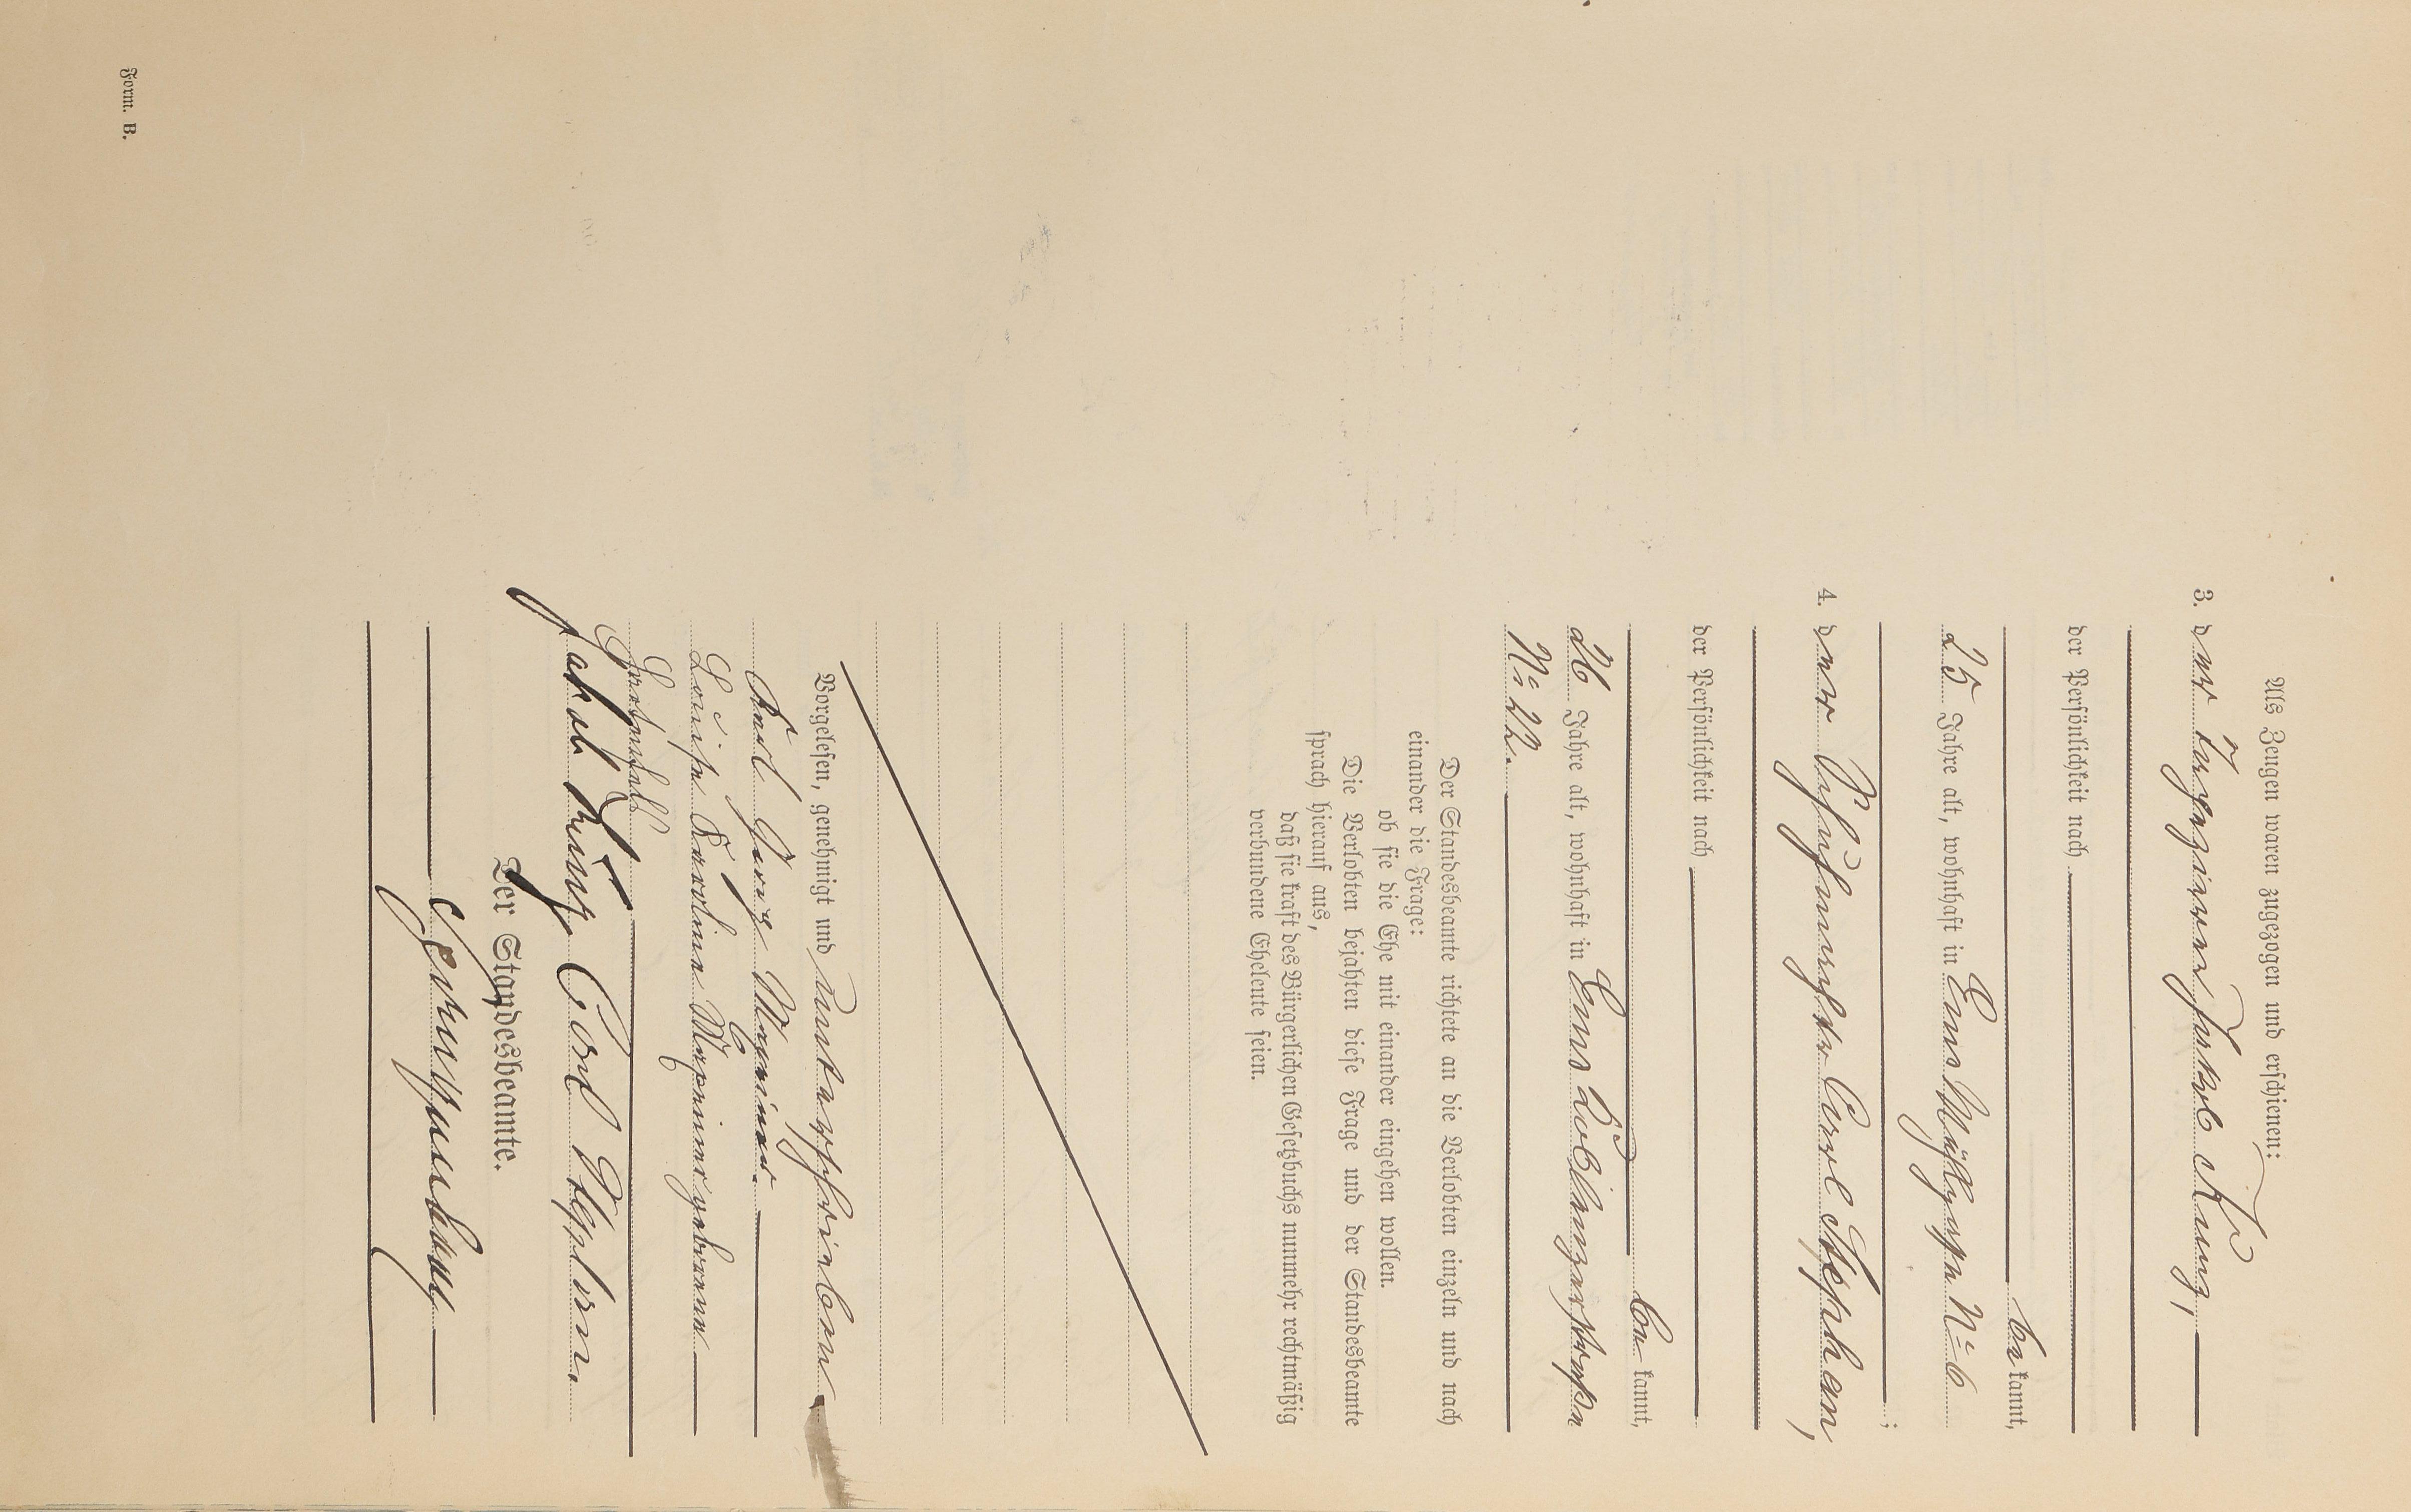 Als Zeugen waren zugezogen und erschienen:
3. der Jakob Kunz,
der Persönlichkeit nach
be kannt,
25 Jahre alt, wohnhaft in Ems N= 6
;
4. der Carl Stephan,
der Persönlichkeit nach
be kannt,
26 Jahre alt, wohnhaft in Ems Koblenzerstraße
N= 22.
Der Standesbeamte richtete an die Verlobten einzeln und nach
einander die Frage:
ob sie die Ehe mit einander eingehen wollen.
Die Verlobten bejahten diese Frage und der Standesbeamte
sprach hierauf aus,
daß sie kraft des Bürgerlichen Gesetzbuchs nunmehr rechtmäßig
verbundene Eheleute seien.
Vorgelesen, genehmigt und unterschrieben
Karl
Louise Karoline geborene
Jakob Kunz Carl Stephan.
Der Standesbeamte.
Form. B.